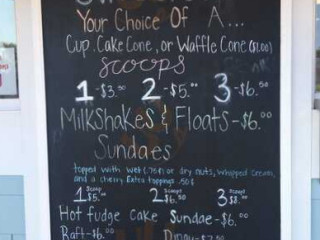 Your Choice Of A...
Cup, Cake Cone, or Waffle Cone ($1.00)
scoops
1-$3.50 2-$5.00 3-$6.50
Milkshakes & Floats-$6.00
Sundaes
topped with wet (.70¢) or dry nuts, whipped cream,
and a cherry. Extra toppings .50¢
1 Scoop $5.00 2 Scoops $6.50 3 Scoops $8.00
Hot fudge Cake Sundae-$6.00
Raft-$6.00